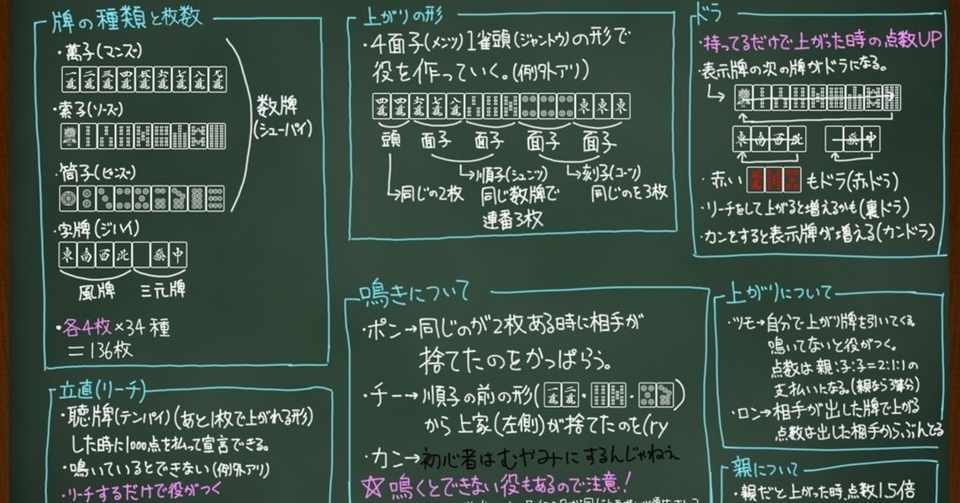 牌の種類と枚数
・萬子(マンズ)
・索子(ソーズ)
・筒子(ピンズ)
数牌
(シューパイ)
・字牌(ジハイ)
東南西北 發中
風牌 三元牌
・各4枚×34種
=136枚
立直(リーチ)
・聴牌(テンパイ)(あと1枚で上がれる形)
した時に1000点を払って宣言できる。
・鳴いているとできない(例外アリ)
・リーチするだけで役がつく
上がりの形
・4面子(メンツ)1雀頭(ジャントウ)の形で
役を作っていく。(例外アリ)
頭 面子 面子 面子 面子
→同じの2枚
→順子(シュンツ)
同じ数牌で
連番3枚
→刻子(コーツ)
同じのを3枚
鳴きについて
・ポン→同じのが2枚ある時に相手が
捨てたのをかっぱらう。
・チー→順子の前の形(・・)
から上家(左側)が捨てたのを(ry
・カン→初心者はむやみにするんじゃねぇ
☆鳴くとできない役もあるので注意!
ドラ
・持ってるだけで上がった時の点数UP
・表示牌の次の牌がドラになる。
東南西北 發中
・赤い もドラ(赤ドラ)
・リーチをして上がると増えるかも(裏ドラ)
・カンをすると表示牌が増える(カンドラ)
上がりについて
・ツモ→自分で上がり牌を引いてくる
鳴いてないと役がつく。
点数は親:子:子=2:1:1の
支払いになる。
・ロン→相手が出した牌で上がる
点数は出した相手からぶんどる
親について
・親だと上がった時点数1.5倍